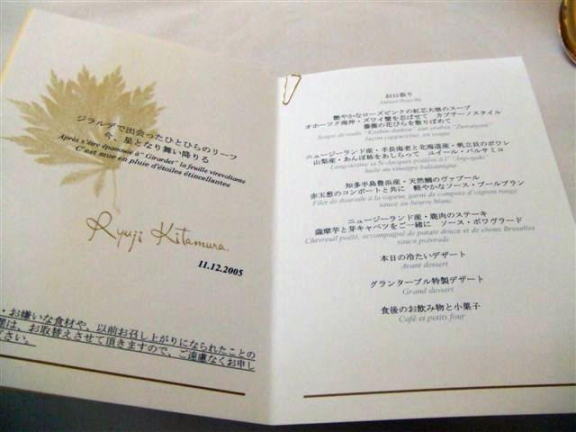 ジラルデで出会ったひとひらのリーフ
今、星となり舞い降りる
Après s'être épanouie à "Girardet" la feuille virevoltante
C'est mise en pluie d'étoiles étincellantes
Ryuji Kitamura
11.12.2005
・お嫌いな食材や、以前お召し上がりになられたことの
は、お取替えさせて頂きますので、ご遠慮なくお申し
さい。
艶やかなローズピンクの紅芯大根のスープ
オホーツク海沖・ズワイ蟹を忍ばせて カプチーノスタイル
薔薇の花びらを散りばめて
ニュージーランド産・手長海老と北海道産・帆立貝のポワレ
山梨産・あんぽ柿をあしらって ユイール・バルサミコ
知多半島豊浜産・天然鯛のヴァプール
赤玉葱のコンポートと共に 軽やかなソース・ブールブラン
Filet de daurade à la vapeur, garni de compote d'oignon rouge
sauce au beurre blanc
ニュージーランド産・鹿肉のステーキ
薩摩芋と芽キャベツをご一緒に ソース・ポワヴラード
Chevreuil poêlé, accompagné de patate douce et de choux Bruxelles
sauce poivrade
本日の冷たいデザート
Avant dessert
グランターブル特製デザート
Grand dessert
食後のお飲み物と小菓子
Café et petits four